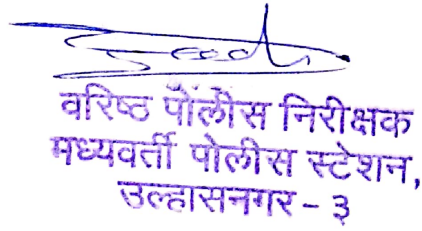 वरिष्ठ पोलीस निरीक्षक
मध्यवर्ती पोलीस स्टेशन,
उल्हासनगर - ३